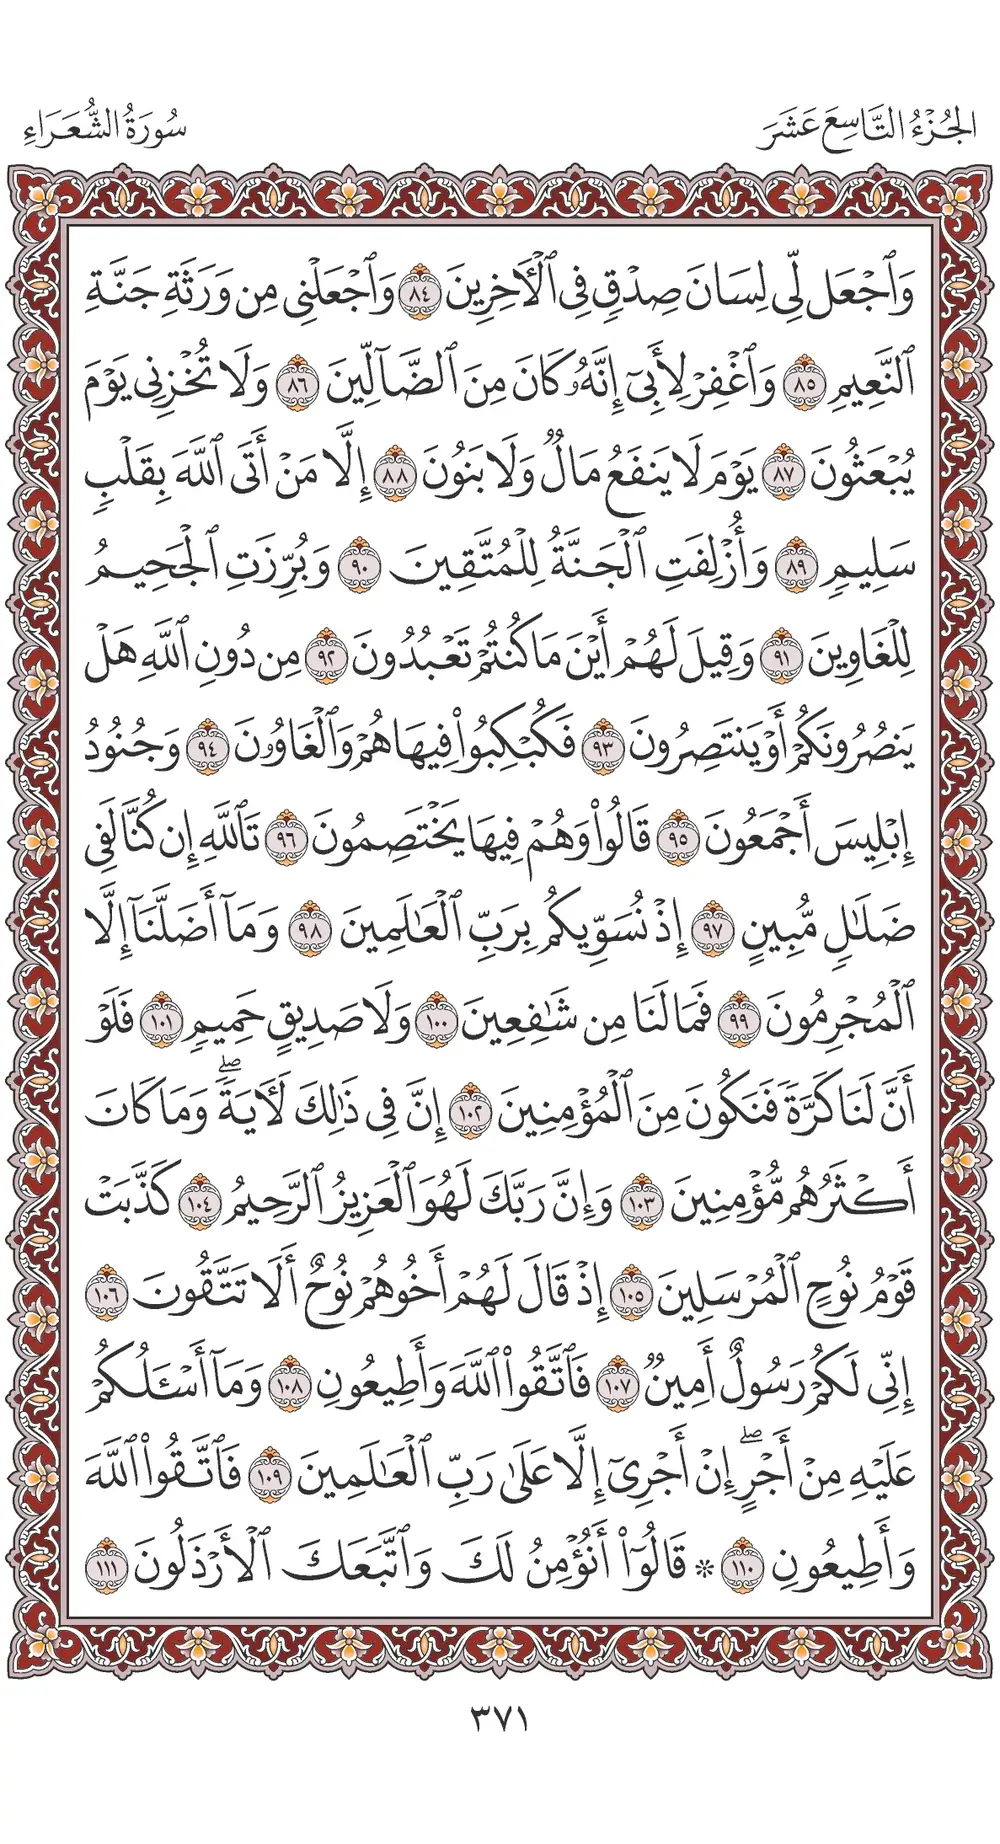 الجُزْءُ التَّاسِعَ عَشَرَ
سُورَةُ الشُّعَرَاءِ
وَٱجْعَل لِّى لِسَانَ صِدْقٍ فِى ٱلْـَٔاخِرِينَ ٨٤ وَٱجْعَلْنِى مِن وَرَثَةِ جَنَّةِ
ٱلنَّعِيمِ ٨٥ وَٱغْفِرْ لِأَبِىٓ إِنَّهُۥ كَانَ مِنَ ٱلضَّآلِّينَ ٨٦ وَلَا تُخْزِنِى يَوْمَ
يُبْعَثُونَ ٨٧ يَوْمَ لَا يَنفَعُ مَالٌ وَلَا بَنُونَ ٨٨ إِلَّا مَنْ أَتَى ٱللَّهَ بِقَلْبٍ
سَلِيمٍ ٨٩ وَأُزْلِفَتِ ٱلْجَنَّةُ لِلْمُتَّقِينَ ٩٠ وَبُرِّزَتِ ٱلْجَحِيمُ
لِلْغَاوِينَ ٩١ وَقِيلَ لَهُمْ أَيْنَ مَا كُنتُمْ تَعْبُدُونَ ٩٢ مِن دُونِ ٱللَّهِ هَلْ
يَنصُرُونَكُمْ أَوْ يَنتَصِرُونَ ٩٣ فَكُبْكِبُوا۟ فِيهَا هُمْ وَٱلْغَاوُۥنَ ٩٤ وَجُنُودُ
إِبْلِيسَ أَجْمَعُونَ ٩٥ قَالُوا۟ وَهُمْ فِيهَا يَخْتَصِمُونَ ٩٦ تَٱللَّهِ إِن كُنَّا لَفِى
ضَلَٰلٍ مُّبِينٍ ٩٧ إِذْ نُسَوِّيكُم بِرَبِّ ٱلْعَٰلَمِينَ ٩٨ وَمَآ أَضَلَّنَآ إِلَّا
ٱلْمُجْرِمُونَ ٩٩ فَمَا لَنَا مِن شَٰفِعِينَ ١٠٠ وَلَا صَدِيقٍ حَمِيمٍ ١٠١ فَلَوْ
أَنَّ لَنَا كَرَّةً فَنَكُونَ مِنَ ٱلْمُؤْمِنِينَ ١٠٢ إِنَّ فِى ذَٰلِكَ لَـَٔايَةً ۖ وَمَا كَانَ
أَكْثَرُهُم مُّؤْمِنِينَ ١٠٣ وَإِنَّ رَبَّكَ لَهُوَ ٱلْعَزِيزُ ٱلرَّحِيمُ ١٠٤ كَذَّبَتْ
قَوْمُ نُوحٍ ٱلْمُرْسَلِينَ ١٠٥ إِذْ قَالَ لَهُمْ أَخُوهُمْ نُوحٌ أَلَا تَتَّقُونَ ١٠٦
إِنِّى لَكُمْ رَسُولٌ أَمِينٌ ١٠٧ فَٱتَّقُوا۟ ٱللَّهَ وَأَطِيعُونِ ١٠٨ وَمَآ أَسْـَٔلُكُمْ
عَلَيْهِ مِنْ أَجْرٍ ۖ إِنْ أَجْرِىَ إِلَّا عَلَىٰ رَبِّ ٱلْعَٰلَمِينَ ١٠٩ فَٱتَّقُوا۟ ٱللَّهَ
وَأَطِيعُونِ ١١٠ * قَالُوٓا۟ أَنُؤْمِنُ لَكَ وَٱتَّبَعَكَ ٱلْأَرْذَلُونَ ١١١
٣٧١